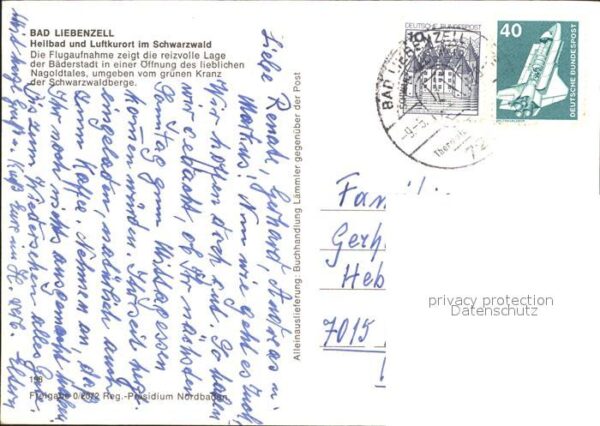 BAD LIEBENZELL
Heilbad und Luftkurort im Schwarzwald
Die Flugaufnahme zeigt die reizvolle Lage
der Bäderstadt in einer Öffnung des lieblichen
Nagoldtales, umgeben vom grünen Kranz
der Schwarzwaldberge.
Liebe Renate, Gerhard, Andreas u.
Martin! Nun wie geht es Euch
Wir hoffen doch gut. So haben
wir gedacht, ob Ihr nächsten
Samstag zum Mittagessen
kommen würdet. Ihr seid herzl.
eingeladen, natürlich auch
zum Kaffee. Nehmen an, daß
Ihr noch nichts ausgemacht habt.
Bis zum Wiedersehen alles Gute
Eure
Alleinauslieferung: Buchhandlung Lämmler gegenüber der Post
198
Freigabe 0/2072 Reg.-Präsidium Nordbaden
10
DEUTSCHE BUNDESPOST
40
DEUTSCHE BUNDESPOST
BAD LIEBENZELL
Fam
Gerh
Heb
7015
privacy protection
Datenschutz